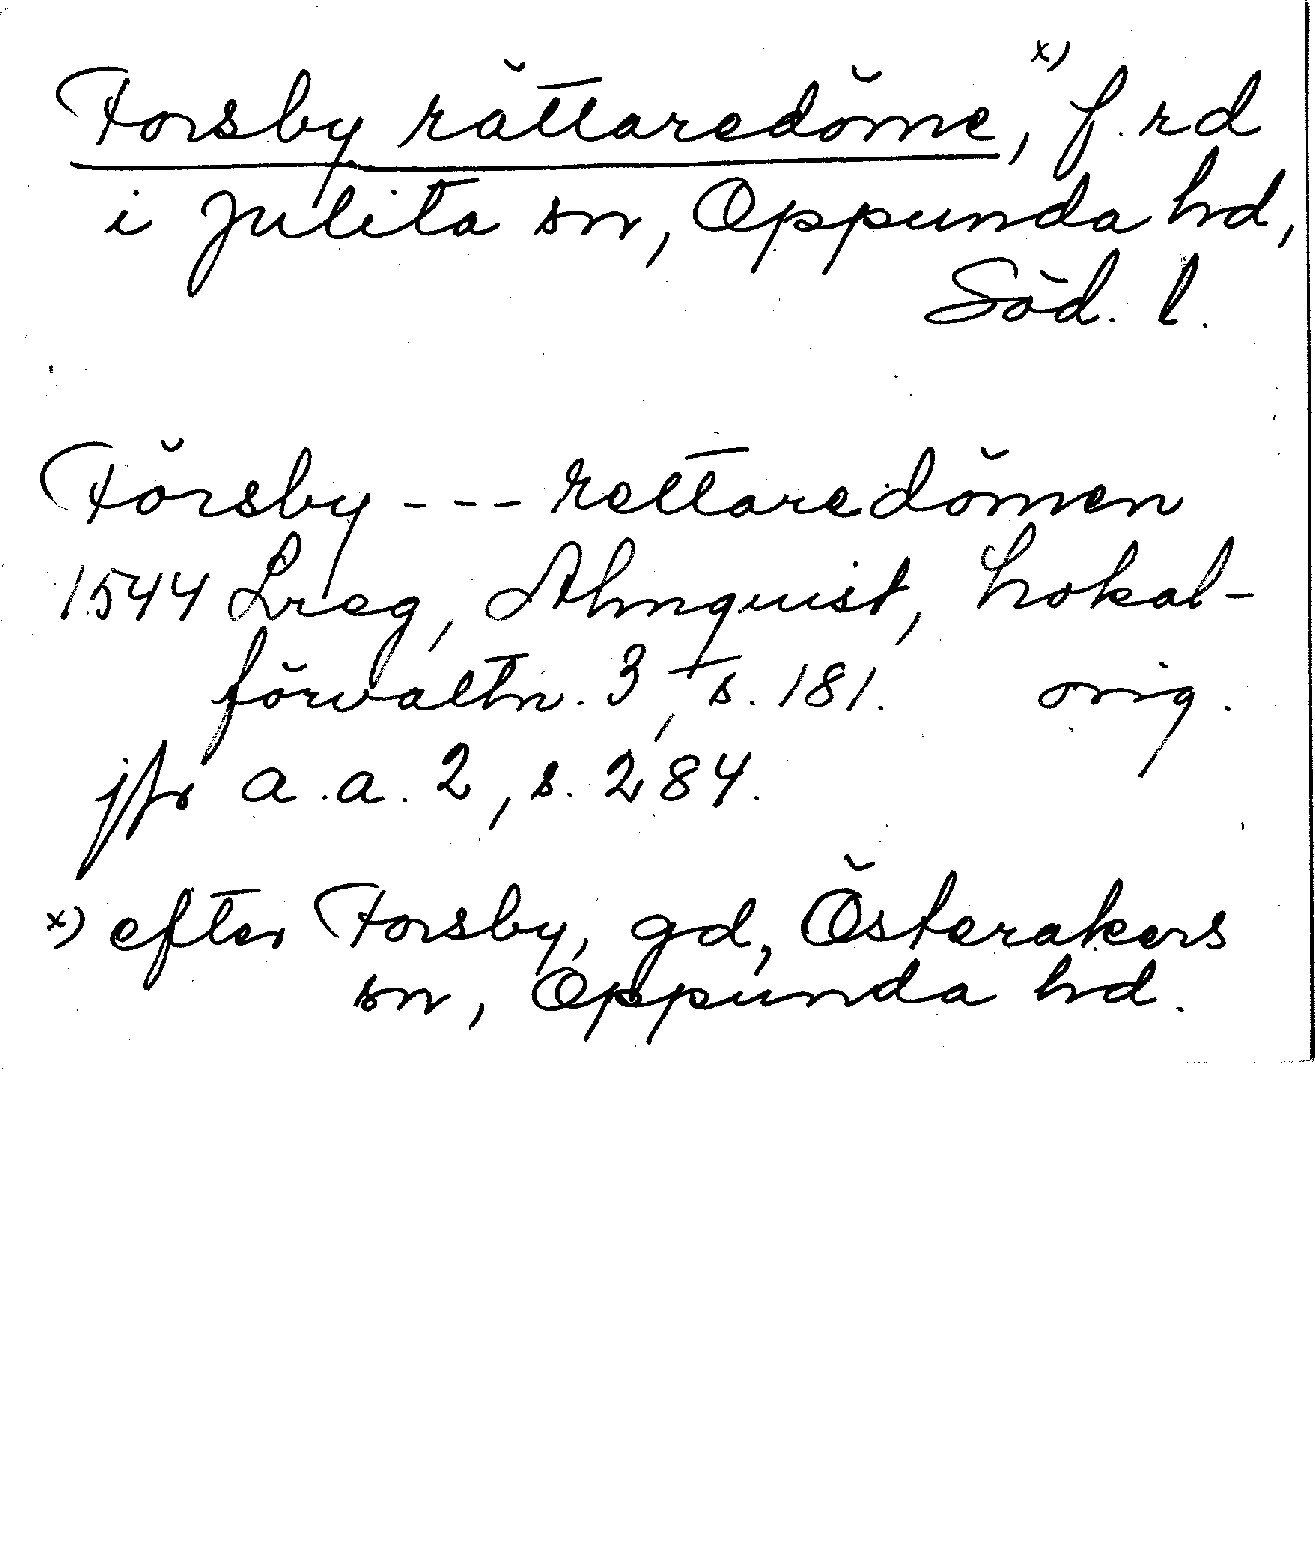 Forsby rättaredöme, x) f. rd
i Julita sn, Oppunda hd,
Söd. l.
Försby - - - rettaredömen
1544 Lreg, Almquist, Lokal-
förvaltn. 3, s. 181. orig.
jfr a. a. 2, s. 284.
x) efter Forsby, gd, Österåkers
sn, Oppunda hd.